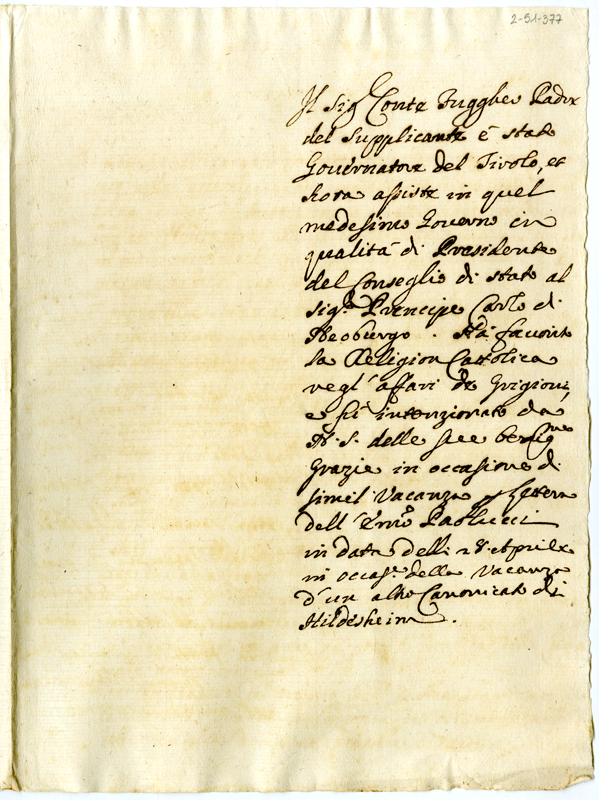 2-51-377
Il Sig.r Conte Fuggher Padre
del supplicante è stato
Governatore del Tirolo, et
hora assiste in quel
medesimo Governo in
qualità di Presidente
del Conseglio di stato al
Sig.r Principe Carlo di
Neoburgo. Hà favorito
la Religion Cattolica
negl'affari de Grigioni,
e fù intenzionato da
N. S. delle sue benig.me
Grazie in occasione di
simil Vacanza lettera
dell'Em.o Paolucci
in data delli 28 Aprile
in occas.e della Vacanza
d'un altro Canonicato di
Hildesheim.